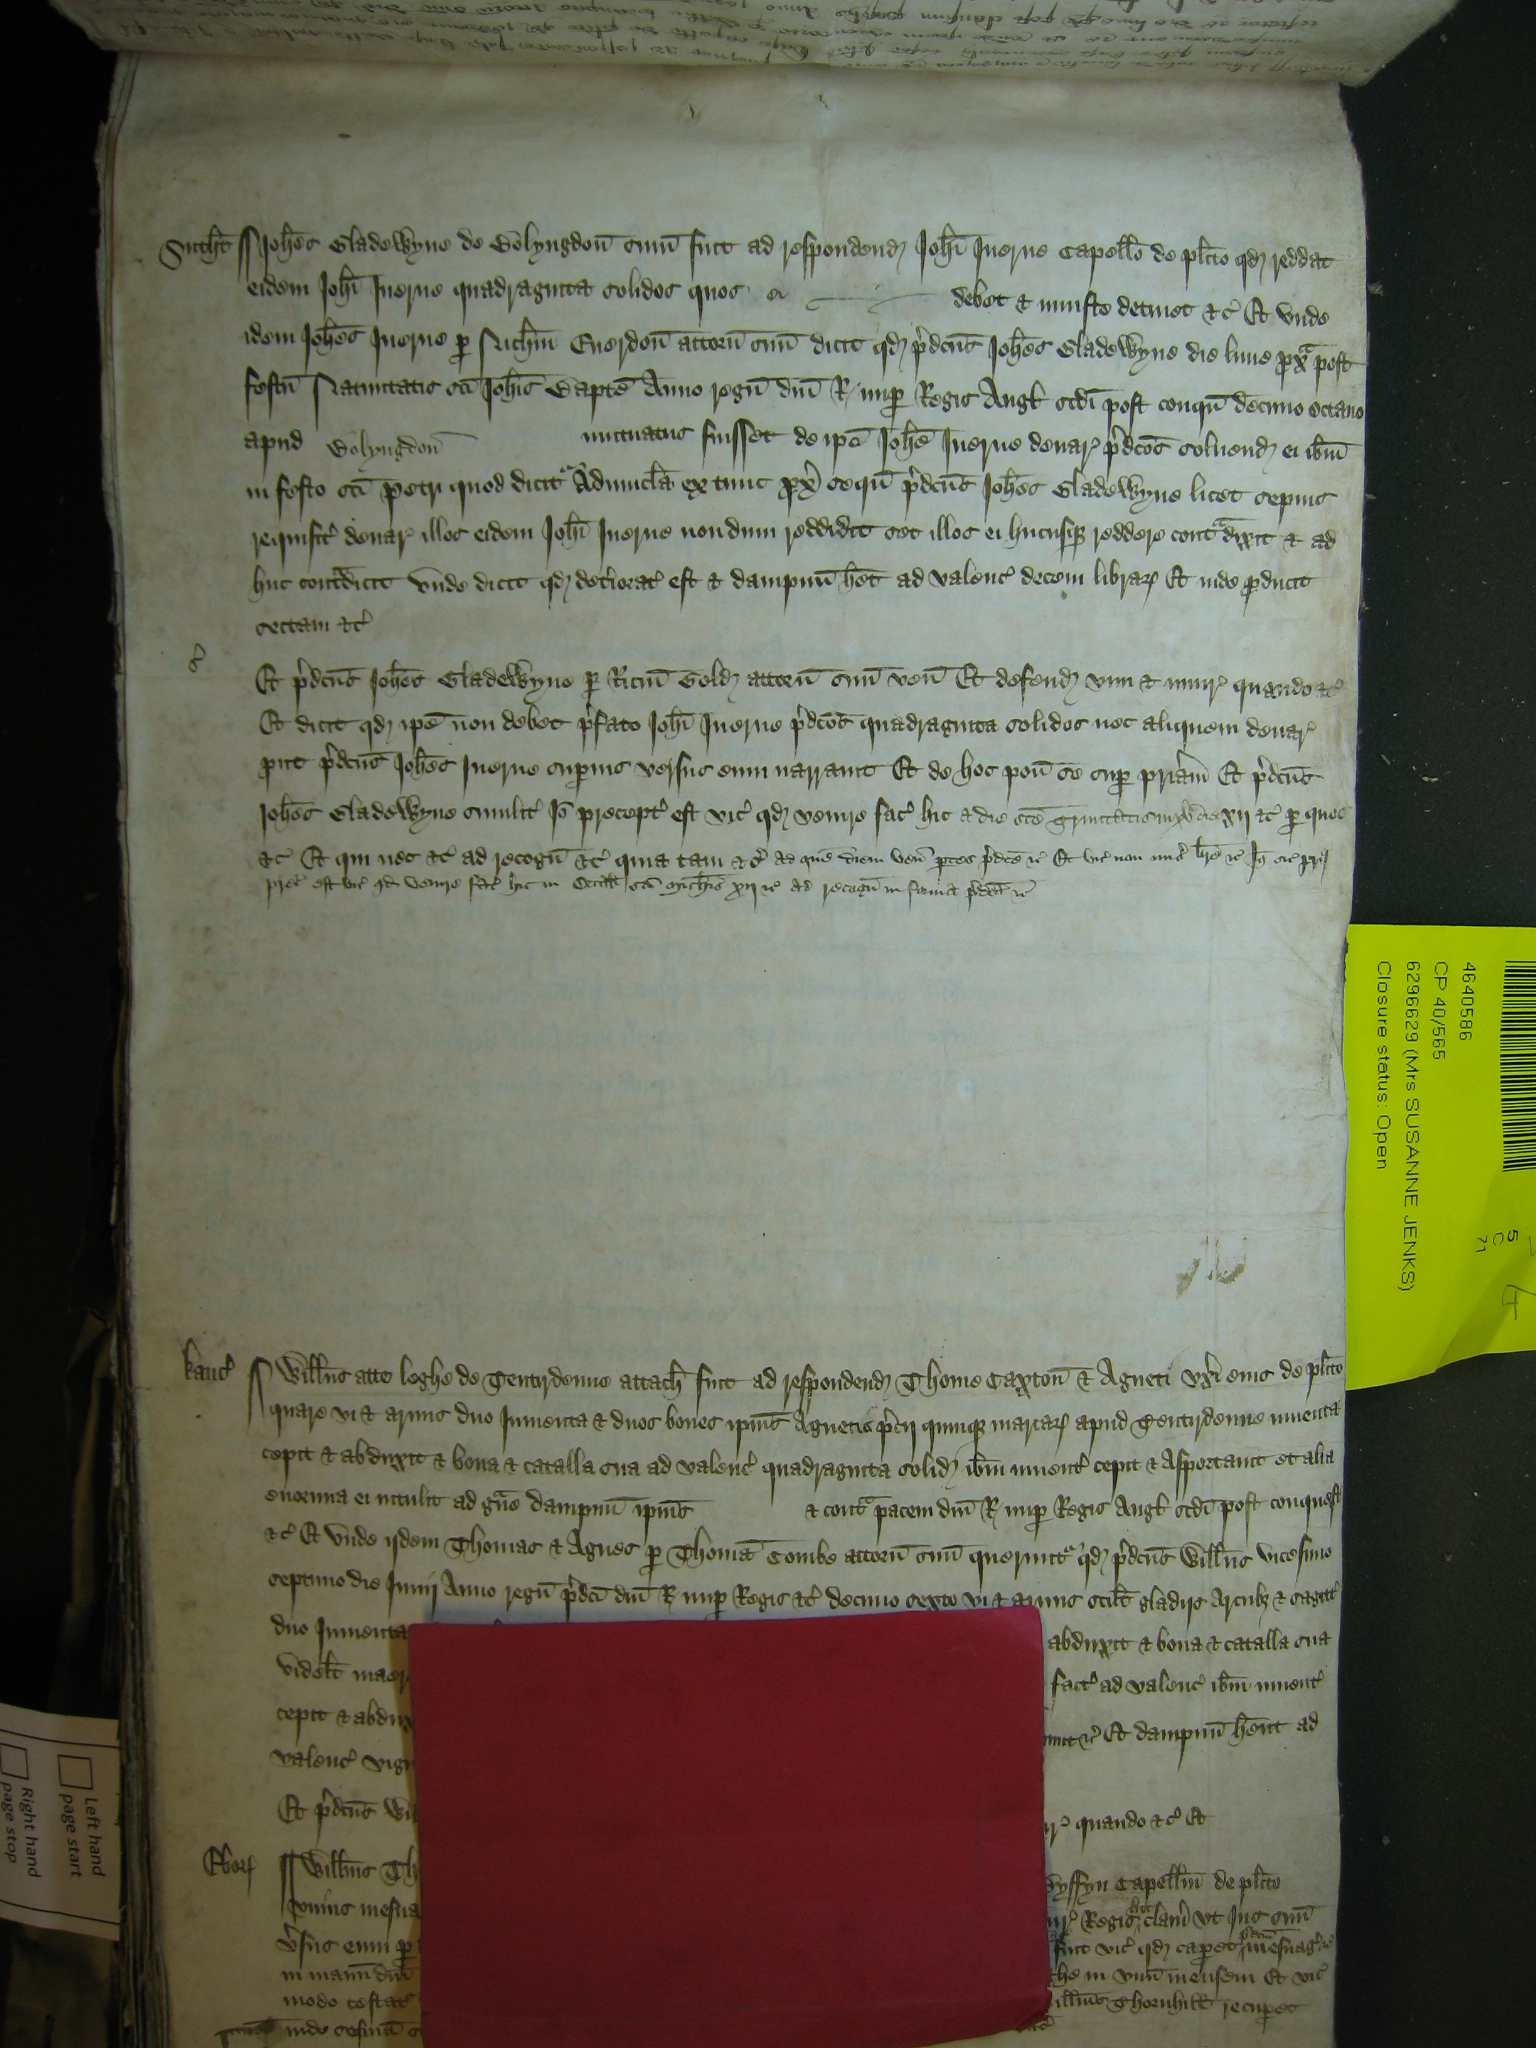 Suthꝭ Joħes Gladewyne de Bolyngdon̄ sum̄ fuit ad respondend̛ Joħi Juerne Capello de plito qd̛ reddat
eidem Joħi Juerne quadraginta solidos quos ei debet & iniuste detinet &c̛ Et vnde
idem Joħes Juerne p Nichm̄ Euerdon̄ attorn̄ suū dicit qd̛ p̛dcūs Joħes Gladewyne die lune px̄ post
festū Natiuitatis sc̄i Joħis Bapte Anno regn̄ dn̄i R. nup Regis Angł scd̄i post conqū decimo octauo
apud Bolyngdon̄ mutuatus fuisset de ip̄o Joħe Juerne denar̛ p̛dcōs soluend̛ ei ibm̄
in festo sc̄i Petri quod dicit̛ Aduincla ex tunc px̄ seqū p̛dcūs Joħes Gladewyne licet sepius
requisit̛ denar̛ illos eidem Joħi Juerne nondum reddidit set illos ei hucusq̛ reddere contᵃdixit & ad
huc contᵃdicit vnde dicit qd̛ det̛iorat̛ est & dampnū het ad valenc̛ decem librar̛ Et inde pducit
sectam &c̛
Et p̛dcūs Joħes Gladewyne p Ricm̄ Gold̛ attorn̄ suū ven̄ Et defend̛ vim & iniur̛ quando &c̛
Et dicit qd̛ ip̄e non debet p̛fato Joħi Juerne p̛dcōs quadraginta solidos nec aliquem denar̛
put p̛dcūs Joħes Juerne supius versus eum narrauit Et de hoc pon̄ se sup pr̄iam Et p̛dcūs
Joħes Gladewyne similit̛ Jō precept̛ est vic̛ qd̛ venire fac̛ hic a die sc̄e Trinitatis in xv dies xij &c̛ p quos
&c̛ Et qui nec &c̛ ad recogn̄ &c̛ quia tam &c̛ Ad quē diem ven̄ ptes p̛dcē &c̛ Et vic̛ non mis̛ br̄e &c̛ Jō sic̛ pri᷒
prec̛ est vic̛ qd̛ venire fac̛ hic in Octab̄ sc̄i Michis xij &c̛ ad recogn̄ in forma p̛dcā &c̛
Kanc̛ Willm̄s atte Leghe de Tentirdenne attach̄ fuit ad respondend̛ Thome Caxton̄ & Agneti vxi eius de plito
quare vi & armis duo Jumenta & duos boues ipius Agnetis p̛cij quinq̛ marcar̛ apud Tentirdenne inuenta
cepit & abduxit & bona & catalla sua ad valenc̛ quadraginta solid̛ ibm̄ inuent̛ cepit & Asportauit et alia
enormia ei intulit ad gᵃue dampnū ipius & contᵃ pacem dn̄i R. nup Regis Angł scd̄i post conquest̄
&c̛ Et vnde ijdem Thomas & Agnes p Thomā Combe attorn̄ suū querunt̛ qd̛ p̛dcūs Willm̄s vicesimo
septimo die Junij Anno regn̄ p̛dcī dn̄i R nup Regis &c̛ decimo sexto vi & armis scilt gladijs Arcub̛ & sagitt̛
duo Jumenta abduxit & bona & catalla sua
videlt fact̛ ad valenc̛ ibm̄ inuent̛
cepit & abdux &c̛ Et dampnū hēnt ad
valenc̛
Et p̛dcūs quando &c̛ Et
Ebor̛ Willm̄s Capellm̄ de plito
vnius Regis clam̄ vt Jus suū
v̛sus eum p fuit vic̛ qd̛ caperet p̛dcm̄ mesuag̛ &c̛
in manū dn̄i in vnū mensem Et vic̛
modo testat̛ Thornhill recupet
inde
4640586
CP 40/565
6296629 (Mrs SUSANNE JENKS)
Closure status: Open
Left hand
page start
Right hand
page stop